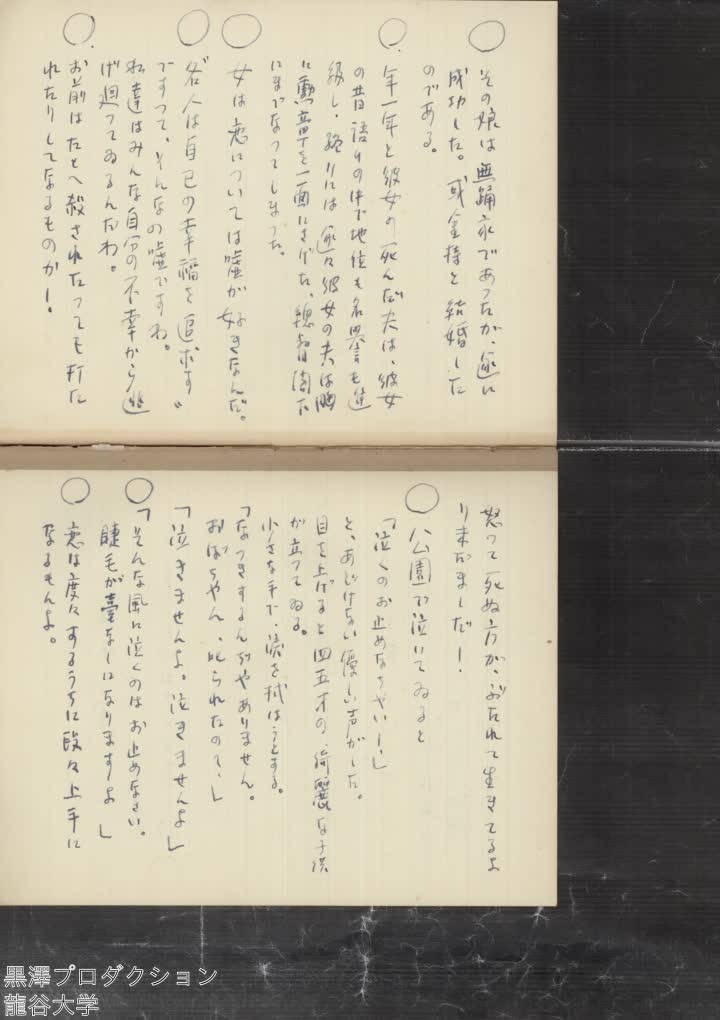 ○ その娘は無踊家であつたが、遂に
成功した。或金持と結婚した
のである。
○ 年一年と彼女の死んだ夫は、彼女
の昔語りの中で地位も名誉も進
級し、終りには遂々彼女の夫は胸
に勲章を一面にさげた、総督閣下
にまでなつてしまつた。
○ 女は恋については嘘が好きなんだ。
○ 各人は自己の幸福を追求す〟
ですつて、そんなの嘘ですわ。
私達はみんな自分の不幸から逃
げ廻つてゐるんだわ。
○ お前はたとへ殺されたつても打た
れたりしてなるものか!
怒つて死ぬ方が、ぶたれて生きてるよ
りまだましだ!
○ 公園で泣いてゐると
「泣くのお止めなちやい!」
と、あどけない優しい声がした。
目を上げると四五才の、綺麗な子供
が立つてゐる。
小さな手で、涙を拭はうとする。
「なつきするんぢやありません。
おばちやん、叱られたの?」
「泣きませんよ。泣きませんよ」
○ 「そんな風に泣くのはお止めなさい。
睫毛が臺なしになりますよ」
○ 恋は度々するうちに段々上手に
なるもんよ。
黒澤プロダクション
龍谷大学